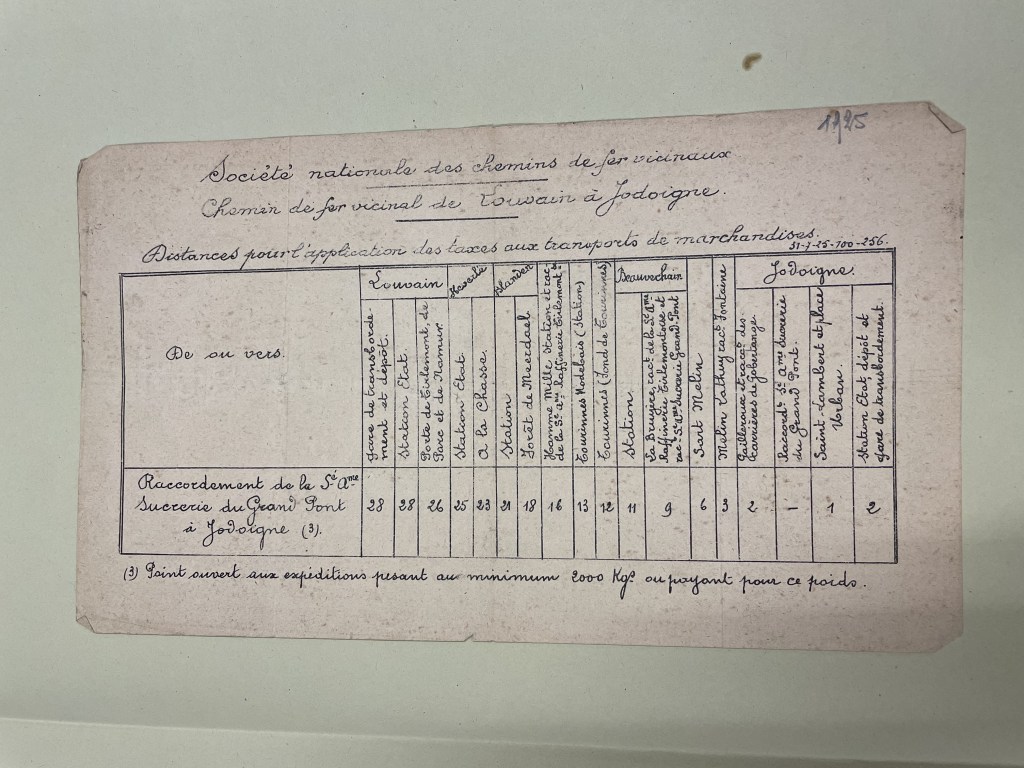 1925
Société nationale des chemins de fer vicinaux
Chemin de fer vicinal de Louvain à Jodoigne.
Distances pour l'application des taxes aux transports de marchandises.
31-7-25-100-256.
De ou vers.
Louvain
Gare de transborde-
ment et dépôt.
Station Etat.
Porte de Tirlemont, de
Parc et de Namur.
Heverlé
Station Etat
A la Chasse.
Blanden
Station
Forêt de Meerdael
Hamme Mille Station et rac.
de la Sé. Ame. Raffinerie Tirlemont se
Tourinnes Nodebais (Station)
Tourinnes (Fond de Tourinnes)
Beauvechain
Station
La Bruyère, ract. de la Sé. Ame.
Raffinerie Tirlemontoise et
ract. Sé. Ame. Sucrerie Grand Pont
Sart Melin
Melin Lathuy ract. Fontaine
Jodoigne.
Gailleroux et racct. des
Carrières de Gobertange.
Raccordt. Sé. Ame. Sucrerie
du Grand Pont.
Saint-Lambert et place
Urban.
Station Etat dépôt et
gare de transbordement.
Raccordement de la Sé. Ame.
Sucrerie du Grand Pont
à Jodoigne (3).
28 28 26 25 23 21 18 16 13 12 11 9 6 3 2 - 1 2
(3) Point ouvert aux expéditions pesant au minimum 2000 Kgs ou payant pour ce poids.